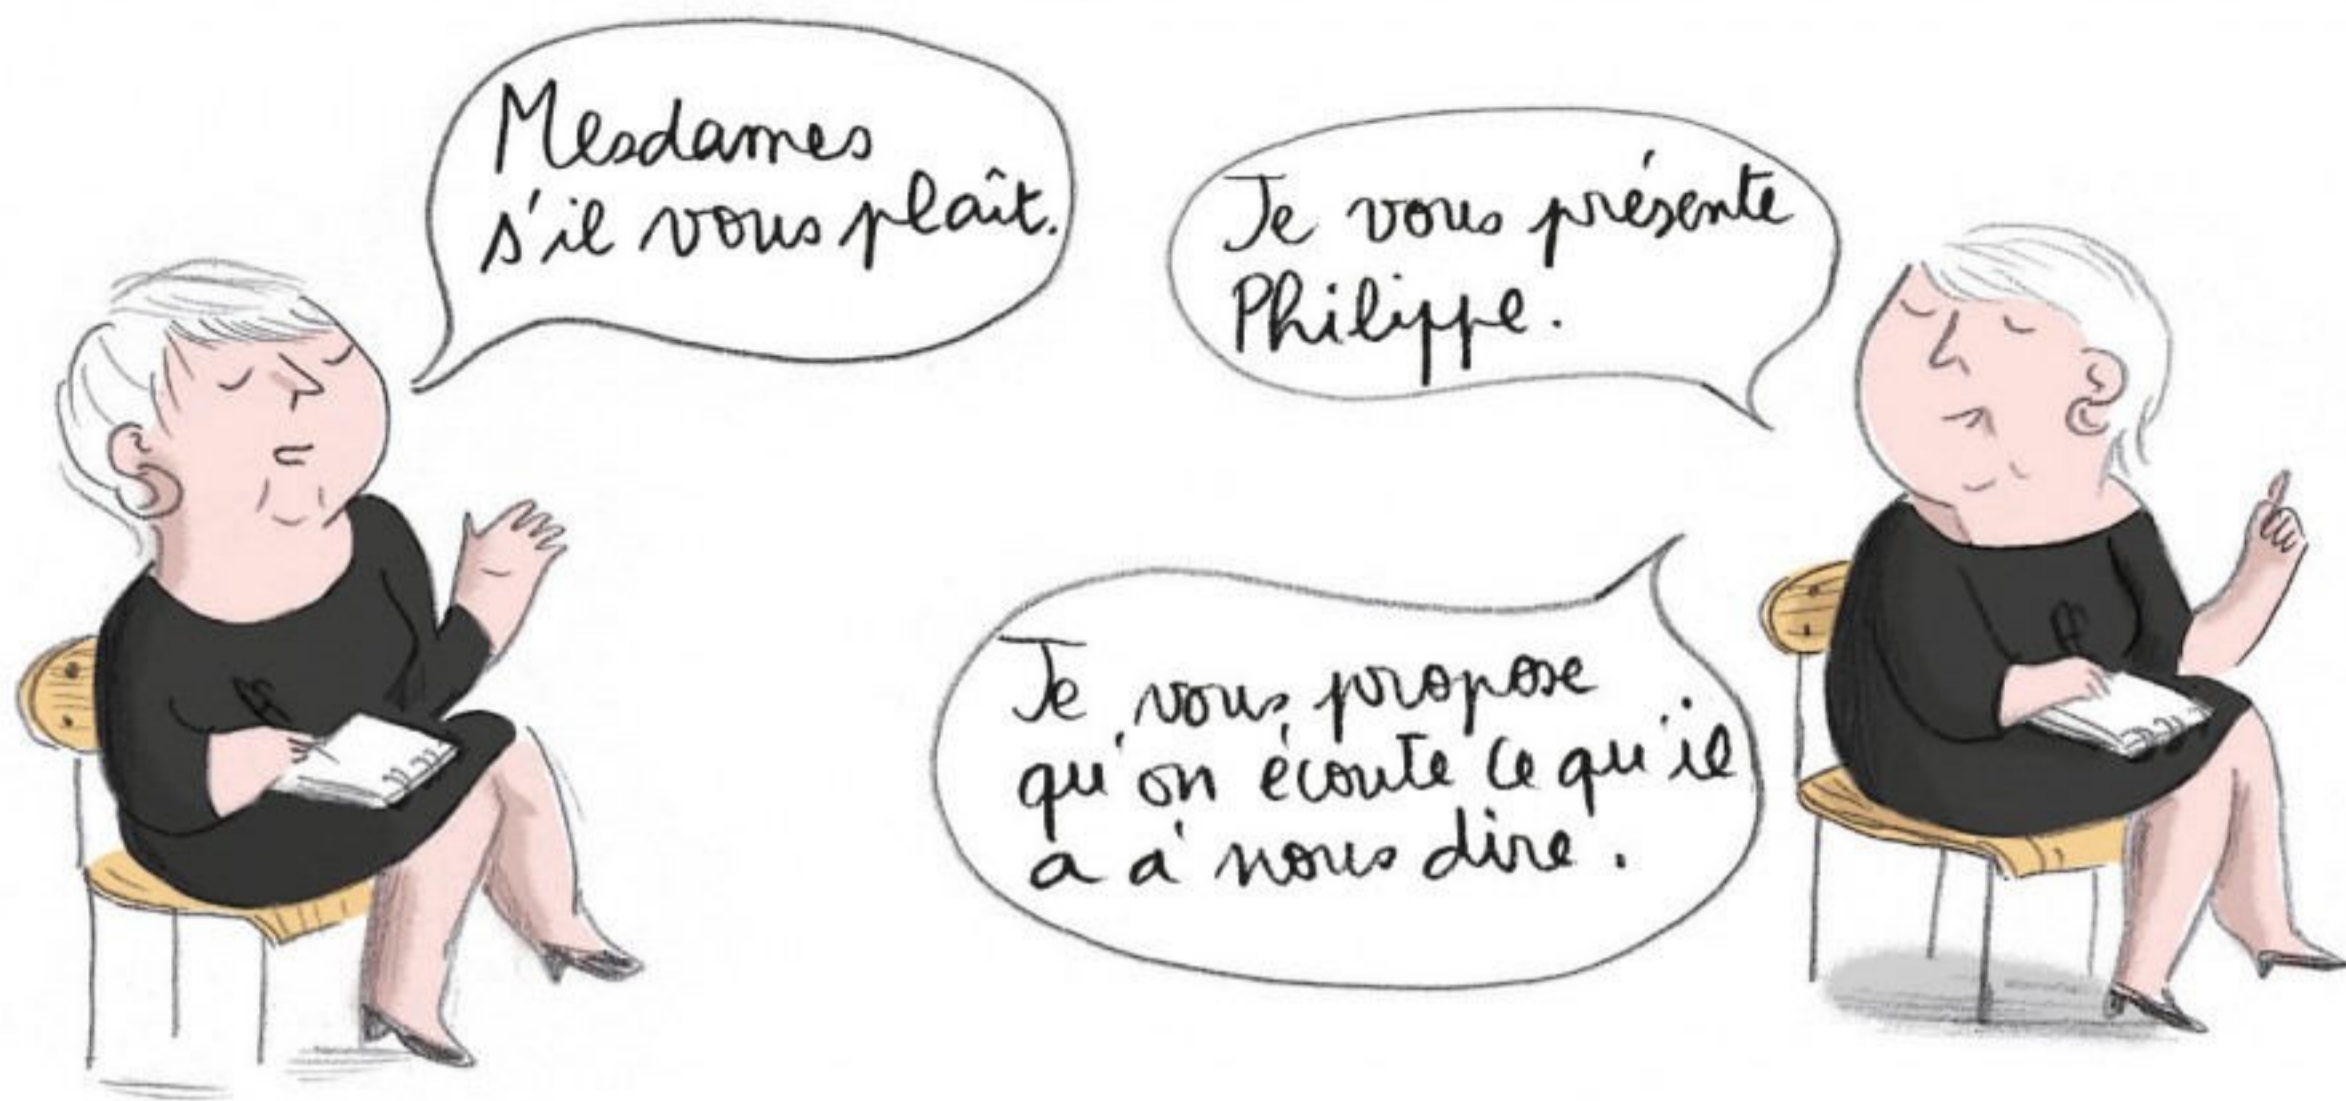 Mesdames
s'il vous plaît.
Je vous présente
Philippe.
Je vous propose
qu'on écoute ce qu'il
a à nous dire.